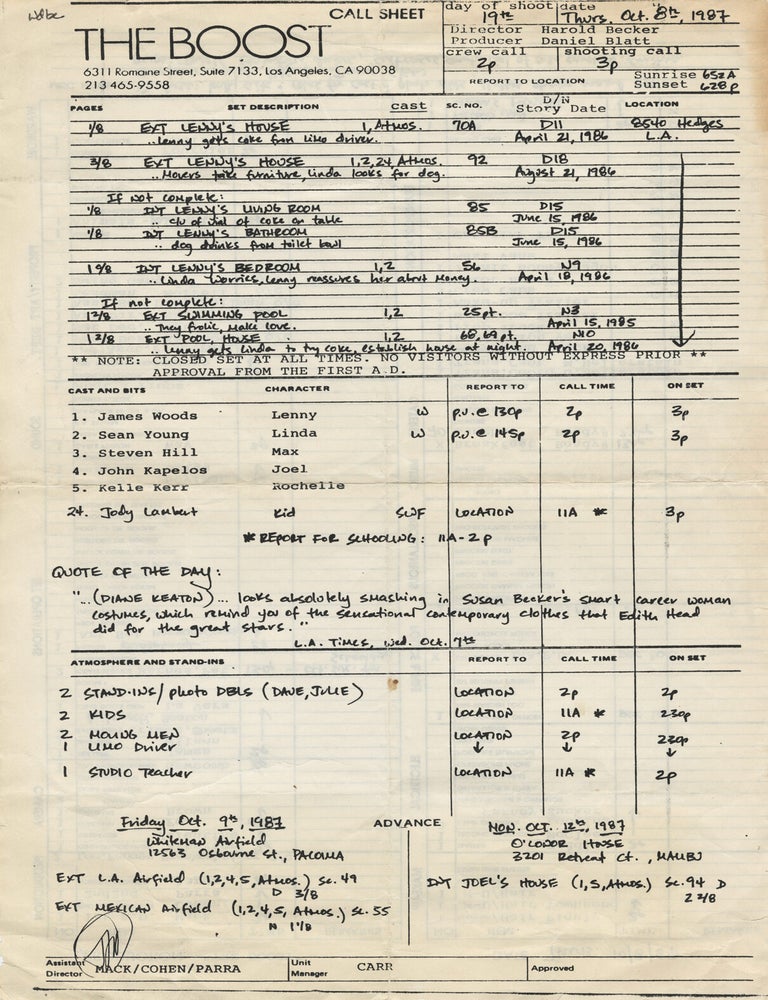 Wdbe
CALL SHEET
THE BOOST
6311 Romaine Street, Suite 7133, Los Angeles, CA 90038
213 465-9558
day of shoot date
19th Thurs. Oct. 8th, 1987
Director Harold Becker
Producer Daniel Blatt
crew call shooting call
2p 3p
REPORT TO LOCATION Sunrise 652A
Sunset 628p
PAGES SET DESCRIPTION cast SC. NO. D/N Story Date LOCATION
1/8 EXT LENNY'S HOUSE 1, Atmos. 70A D11 8540 Hedges
..Lenny gets coke from limo driver. April 21, 1986 L.A.
3/8 EXT LENNY'S HOUSE 1,2,24, Atmos. 92 D18
..Movers take furniture, Linda looks for dog. August 21, 1986
If not complete:
1/8 INT LENNY'S LIVING ROOM 85 D15
.. c/u of vial of coke on table June 15, 1986
1/8 INT LENNY'S BATHROOM 85B D15
.. dog drinks from toilet bowl June 15, 1986
INT LENNY'S BEDROOM 1,2 56 N9
..Linda worries, Lenny reassures her about money. April 18, 1986
If not complete:
EXT SWIMMING POOL 1,2 25pt. N3
..They frolic, make love. April 15, 1985
1 2/8 EXT POOL, HOUSE 1,2 68,69pt. N10
..Lenny gets Linda to try coke, establish house at night. April 20, 1986
** NOTE: CLOSED SET AT ALL TIMES. NO VISITORS WITHOUT EXPRESS PRIOR **
APPROVAL FROM THE FIRST A.D.
CAST AND BITS CHARACTER REPORT TO CALL TIME ON SET
1. James Woods Lenny W p.u.@ 130p 2p 3p
2. Sean Young Linda W p.u.@ 145p 2p 3p
3. Steven Hill Max
4. John Kapelos Joel
5. Kelle Kerr Rochelle
24. Jody Lambert Kid SWF LOCATION 11A * 3p
* REPORT FOR SCHOOLING: 11A-2p
QUOTE OF THE DAY:
"...(DIANE KEATON)... looks absolutely smashing in Susan Becker's smart career woman
costumes, which remind you of the sensational contemporary clothes that Edith Head
did for the great stars."
L.A. Times, Wed. Oct. 7th
ATMOSPHERE AND STAND-INS REPORT TO CALL TIME ON SET
2 STAND-INS/photo DBLS (DAVE, JULIE) LOCATION 2p 2p
2 KIDS LOCATION 11A * 230p
2 MOVING MEN LOCATION 2p 230p
1 LIMO Driver ↓ ↓ ↓
1 STUDIO Teacher LOCATION 11A * 2p
ADVANCE
Friday Oct. 9th, 1987
Whiteman Airfield
12563 Osbourne St., PACOIMA
EXT L.A. Airfield (1,2,4,5, Atmos.) Sc. 49
D 3/8
EXT MEXICAN Airfield (1,2,4,5, Atmos.) Sc. 55
N 1 1/8
MON. OCT. 12th, 1987
O'CONOR HOUSE
3201 Retreat Ct., MALIBU
INT JOEL'S HOUSE (1,5, Atmos.) Sc. 94 D
2 2/8
Assistant Director MACK/COHEN/PARRA Unit Manager CARR Approved